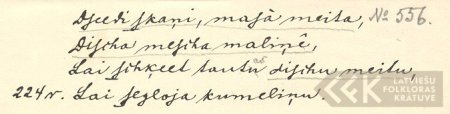 Dseedi skani, masâ meita, № 556.
Disiha mesiha maliņê,
Lai sihkeet tautu disihu meitu,
224 v. Lai segloja kumeliņu.
LATVIEŠU
FOLKLORAS
KRĀTUVE